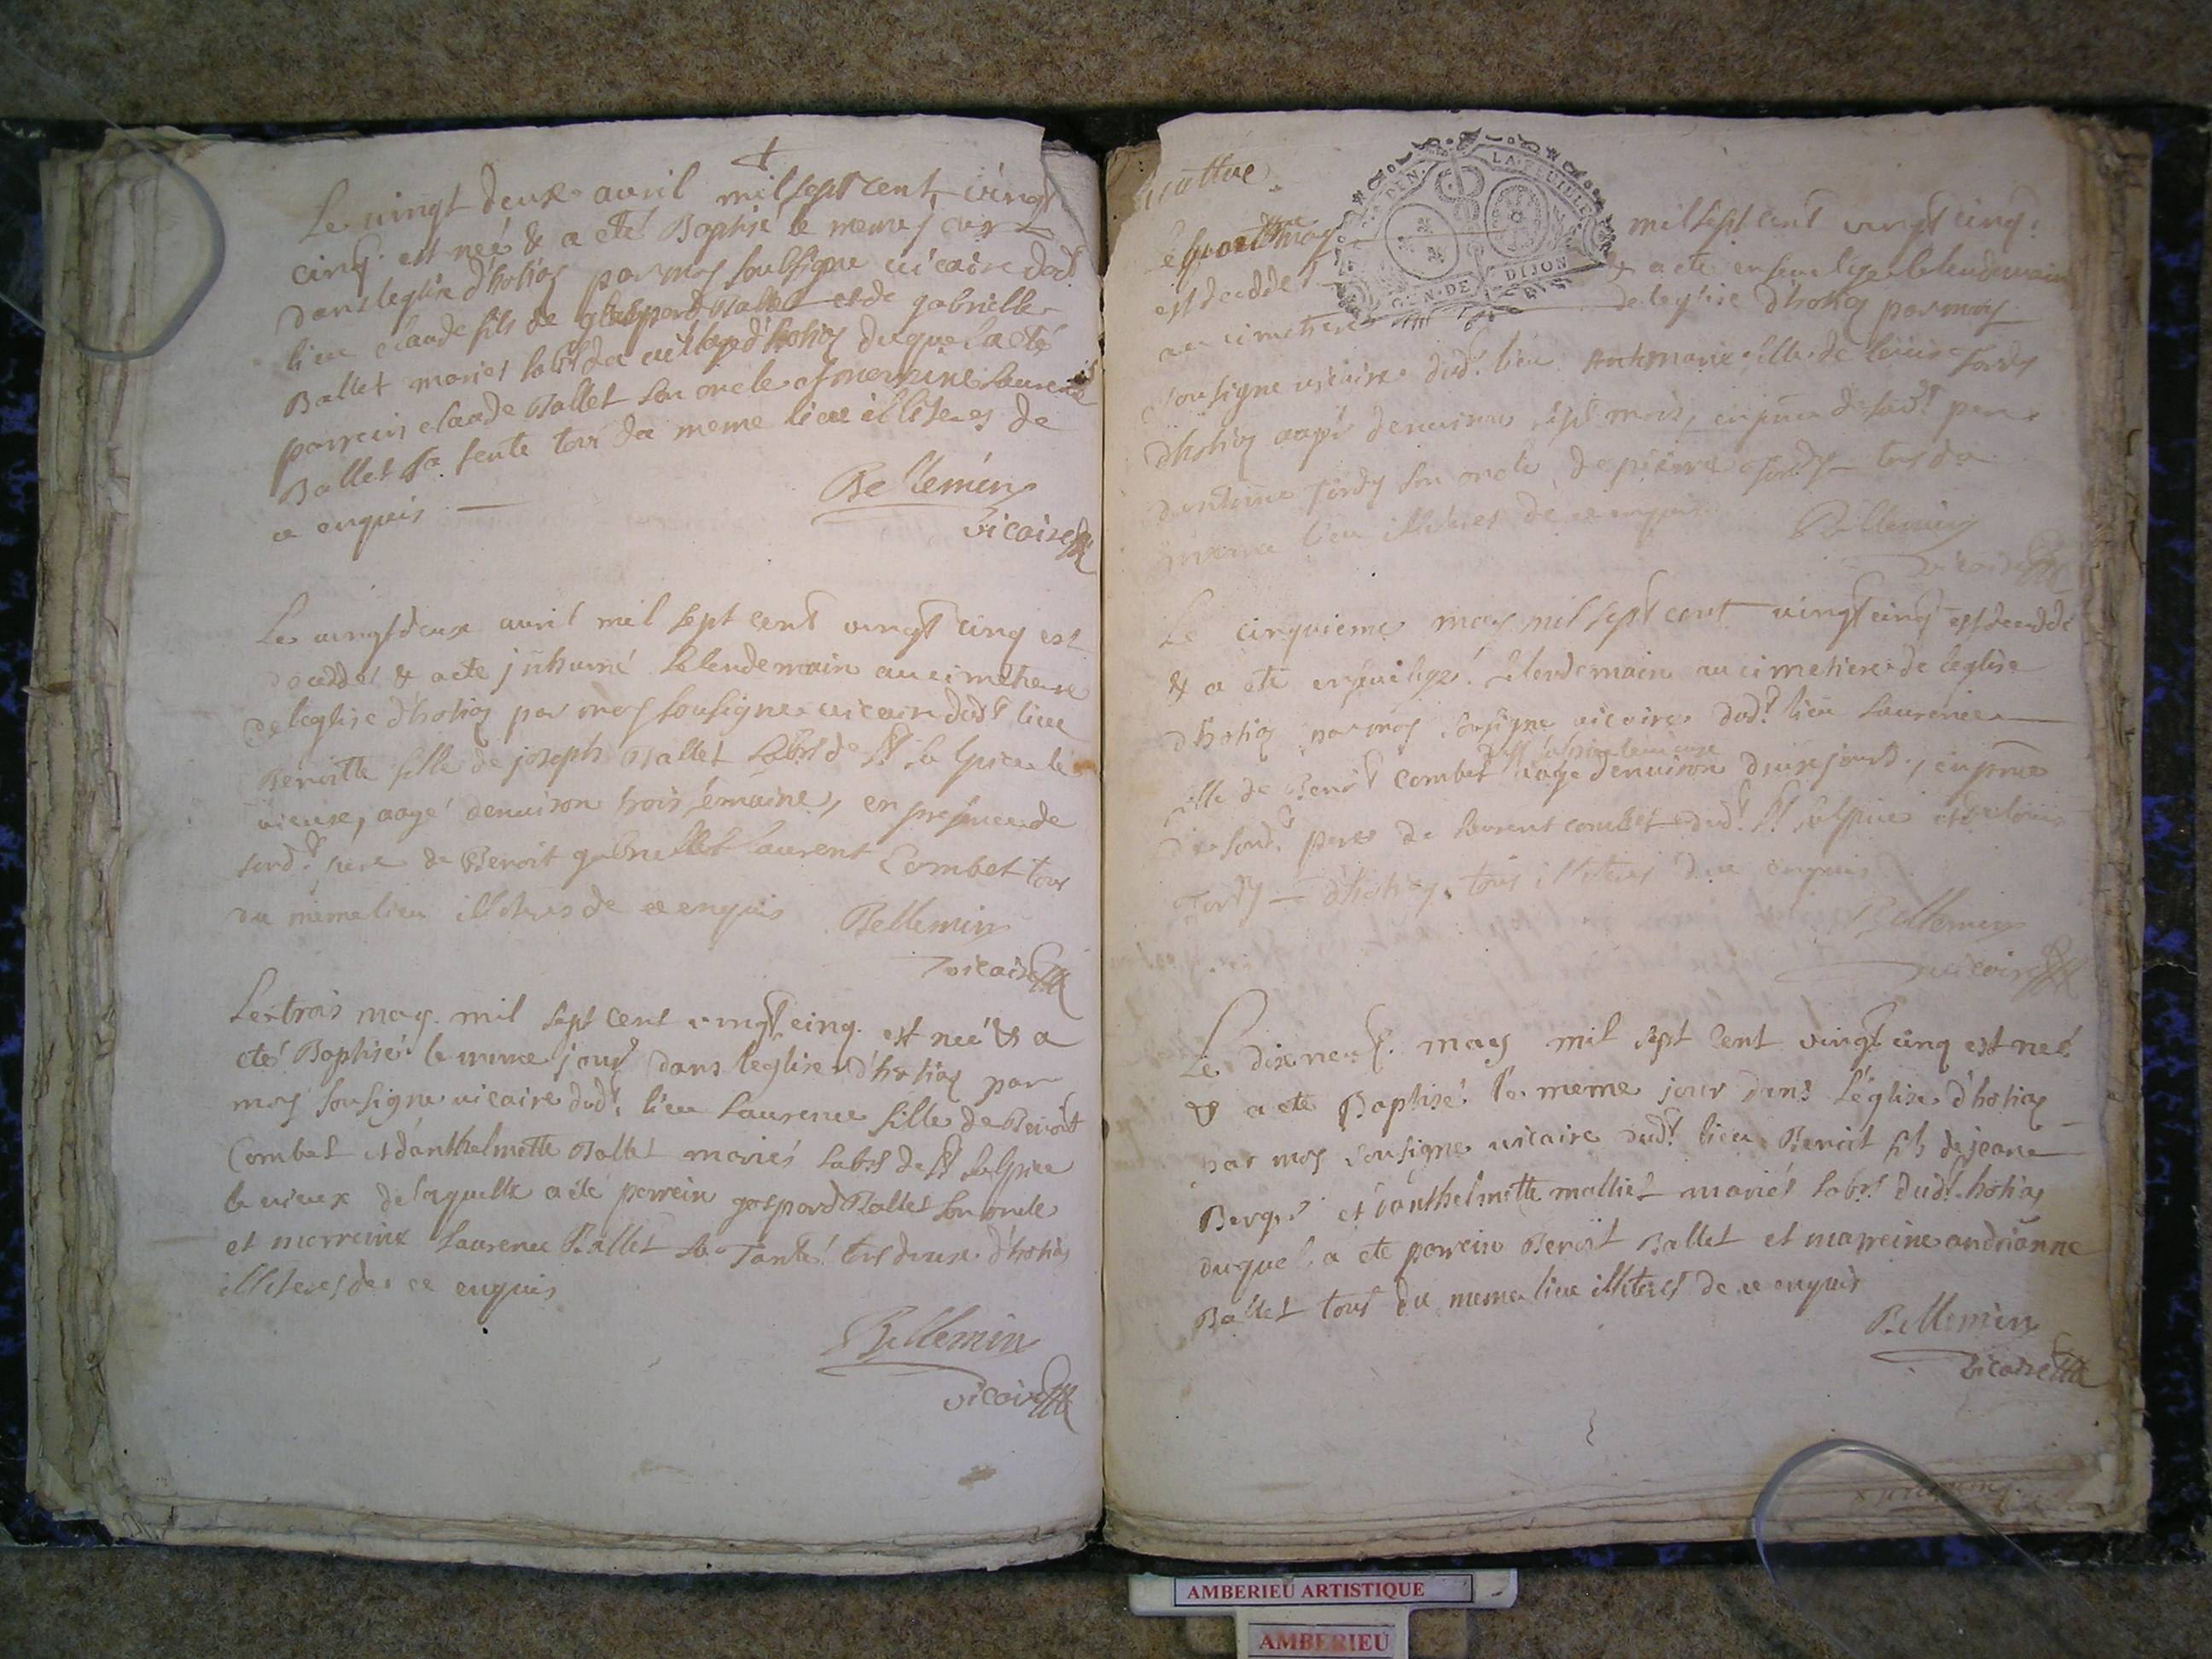 Le vingt deux avril mil sept cent vingt
cinq est neé & a eté Baptisé le meme jour
dans leglise d'hostiaz par moy soubsigne vicaire dudt
lieu claude fils de gaspard Ballet et de gabrielle
Ballet mariés labrs du village d'hostiaz duquel a eté
parrein claude Ballet son oncle & merreine laurence
Ballet sa tente tous du meme lieu illiteres de
ce enquis
Bellemin
vicaire
Le vingt deux avril mil sept cent vingt cinq est
deceddeé & a ete jnhumé le lendemain au cimetiere
de leglise d'hostiaz par moy sousigne vicaire dudt lieu
Benoitte fille de joseph Ballet labrs de st sulpice le
vieux, aagé denuiron trois semaine, en presence de
sondt pere de Benoit gabriellet laurent Combet tous
du meme lieu illiteres de ce enquis
Bellemin
vicaire
Le trois may mil sept cent vingt cinq est neé & a
eté Baptisé le meme jour dans l'eglise d'hostiaz par
moy sousigne vicaire dudt lieu laurence fille de Benoit
Combet et d'anthelmette Ballet mariés labrs de st sulpice
le vieux de laquelle a eté perrein gaspard Ballet son oncle
et merreine laurence Ballet sa Tante tous deux d'hostiaz
illiteres de ce enquis
Bellemin
vicaire
LA FEUILLE
DEN.
GEN. DE DIJON
Le quattrme may mil sept cent vingt cinq
est deceddeé & a ete enseuelize le lendemain
au cimetiere de leglise d'hostiaz par moy
sousigne vicaire dudt lieu marie fille de louis Jordy
d'hostiaz aagé denuiron sept mois, en pnce de sondt pere
dantoine Jordy son oncle, de pierre Jordy tous du
meme lieu illiteres de ce enquis
Bellemin
vicaire
Le cinquieme may mil sept cent vingt cinq est deceddé
& a ete enseuelize le lendemain au cimetiere de leglise
d'hostiaz par moy sousigne vicaire dudt lieu laurence
de st sulpice le vieux
fille de Benoit Combet aagé denuiron deux jours, en pnce
de sondt pere de laurent combet dudt st sulpice et de louis
Jordy d'hostiaz tous illiteres de ce enquis
Bellemin
vicaire
Le dixneuf may mil sept cent vingt cinq est neé
& a eté Baptisé le meme jour dans l'église d'hostiaz
par moy sousigne vicaire dudt lieu Benoit fils de jean
et danthelmette malliet mariés labrs dudt hostiaz
duquel a ete parrein Benoit Ballet et marreine andrianne
Ballet tous du meme lieu illiteres de ce enquis
Bellemin
vicaire
AMBERIEU ARTISTIQUE
AMBERIEU